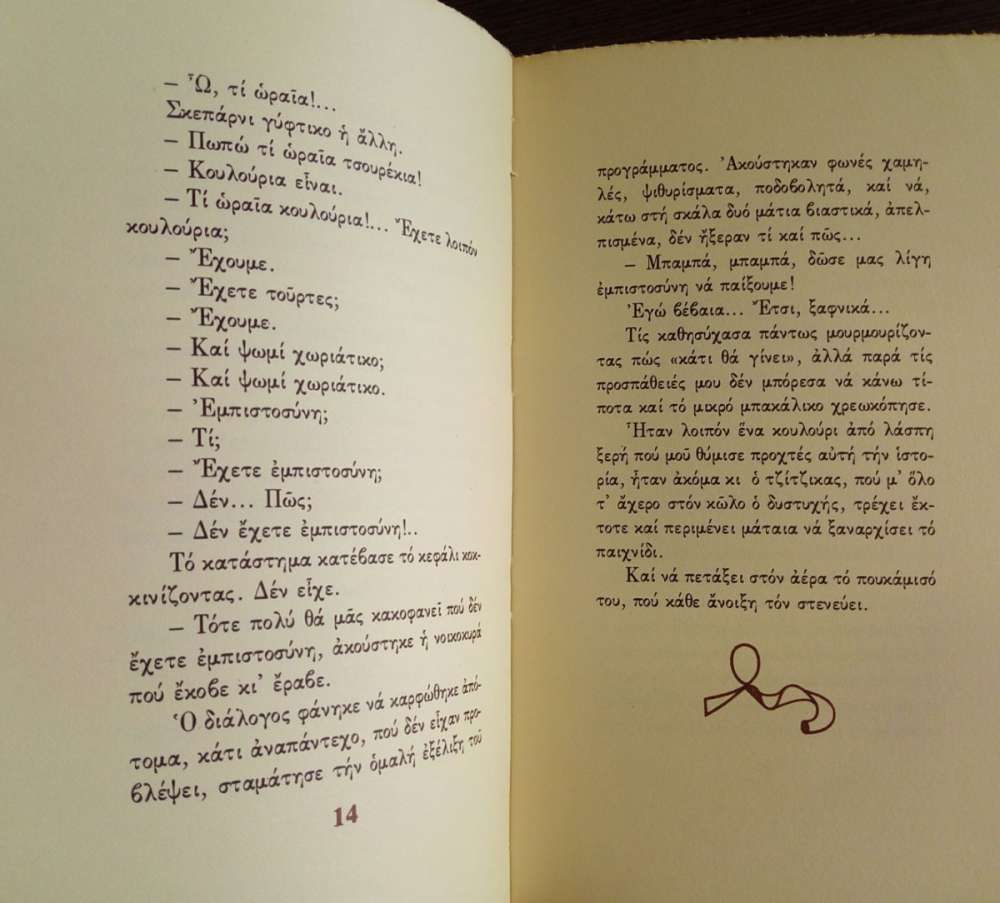 – Ὦ, τί ὡραῖα!...
Σκεπάρνι γύφτικο ἡ ἄλλη.
– Πωπώ τί ὡραῖα τσουρέκια!
– Κουλούρια εἶναι.
– Τί ὡραῖα κουλούρια!... Ἔχετε λοιπόν
κουλούρια;
– Ἔχουμε.
– Ἔχετε τοῦρτες;
– Ἔχουμε.
– Καί ψωμί χωριάτικο;
– Καί ψωμί χωριάτικο.
– Ἐμπιστοσύνη;
– Τί;
– Ἔχετε ἐμπιστοσύνη;
– Δέν... Πῶς;
– Δέν ἔχετε ἐμπιστοσύνη!..
Τό κατάστημα κατέβασε τό κεφάλι κοκ-
κινίζοντας. Δέν εἶχε.
– Τότε πολύ θά μᾶς κακοφανεῖ πού δέν
ἔχετε ἐμπιστοσύνη, ἀκούστηκε ἡ νοικοκυρά
πού ἔκοβε κι᾽ ἔραβε.
Ὁ διάλογος φάνηκε νά καρφώθηκε ἀπό-
τομα, κάτι ἀναπάντεχο, πού δέν εἶχαν προ-
βλέψει, σταμάτησε τήν ὁμαλή ἐξέλιξη τοῦ
14
προγράμματος. Ἀκούστηκαν φωνές χαμη-
λές, ψιθυρίσματα, ποδοβολητά, καί νά,
κάτω στή σκάλα δυό μάτια βιαστικά, ἀπελ-
πισμένα, δέν ἤξεραν τί καί πῶς...
– Μπαμπά, μπαμπά, δῶσε μας λίγη
ἐμπιστοσύνη νά παίξουμε!
Ἐγώ βέβαια... Ἔτσι, ξαφνικά...
Τίς καθησύχασα πάντως μουρμουρίζον-
τας πώς «κάτι θά γίνει», ἀλλά παρά τίς
προσπάθειές μου δέν μπόρεσα νά κάνω τί-
ποτα καί τό μικρό μπακάλικο χρεωκόπησε.
Ἦταν λοιπόν ἕνα κουλούρι ἀπό λάσπη
ξερή πού μοῦ θύμισε προχτές αὐτή τήν ἱστο-
ρία, ἦταν ἀκόμα κι ὁ τζίτζικας, πού μ᾽ ὅλο
τ᾽ ἄχερο στόν κῶλο ὁ δυστυχής, τρέχει ἔκ-
τοτε καί περιμένει μάταια νά ξαναρχίσει τό
παιχνίδι.
Καί νά πετάξει στόν ἀέρα τό πουκάμισό
του, πού κάθε ἄνοιξη τόν στενεύει.